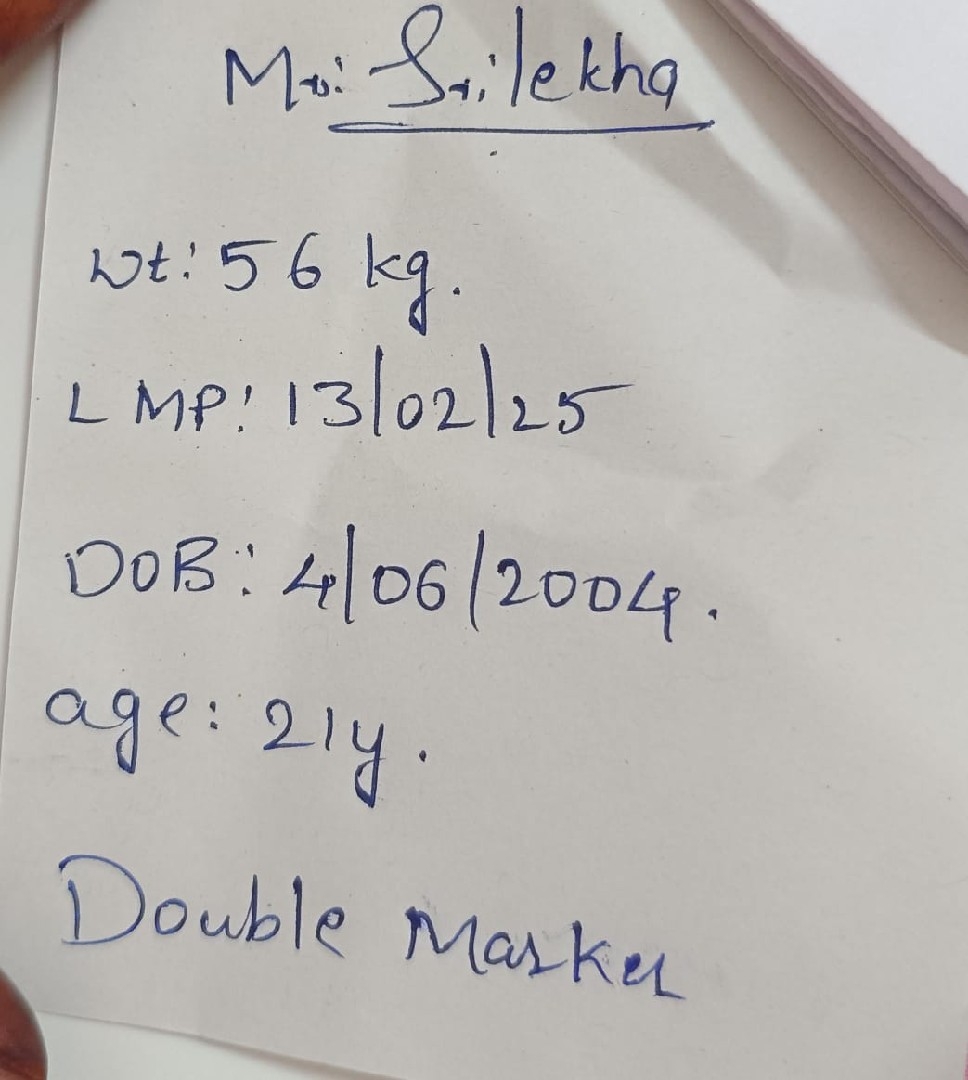 Mrs: Srilekha
Wt: 56 kg.
LMP: 13/02/25
DOB: 4/06/2004.
age: 21y.
Double Marker